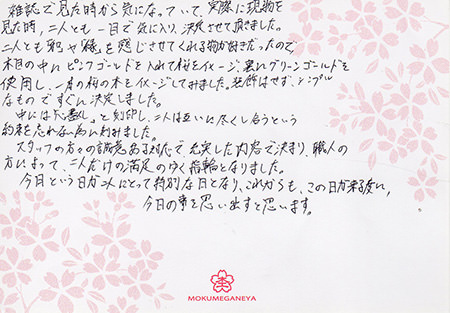 雑誌で見た時から気になっていて、実際に現物を
見た時、二人とも一目で気に入り、決定させて頂きました。
二人とも和や桜を感じさせてくれる物が好きだったので
木目の中にピンクゴールドを入れて桜をイメージ、裏にグリーンゴールドを
使用し、一本の桜の木をイメージしてみました。装飾はせず、シンプル
なものですぐに決定しました。
中には と刻印し、二人は互いに尽くし合うという
約束を忘れない為に刻みました。
スタッフの方々の誠意ある対応で、充実した内容で決まり、職人の
方によって、二人だけの満足のゆく指輪となりました。
今日という日が二人にとって特別な日となり、これからも、この日が来る度に、
今日の事を思い出すと思います。
MOKUMEGANEYA